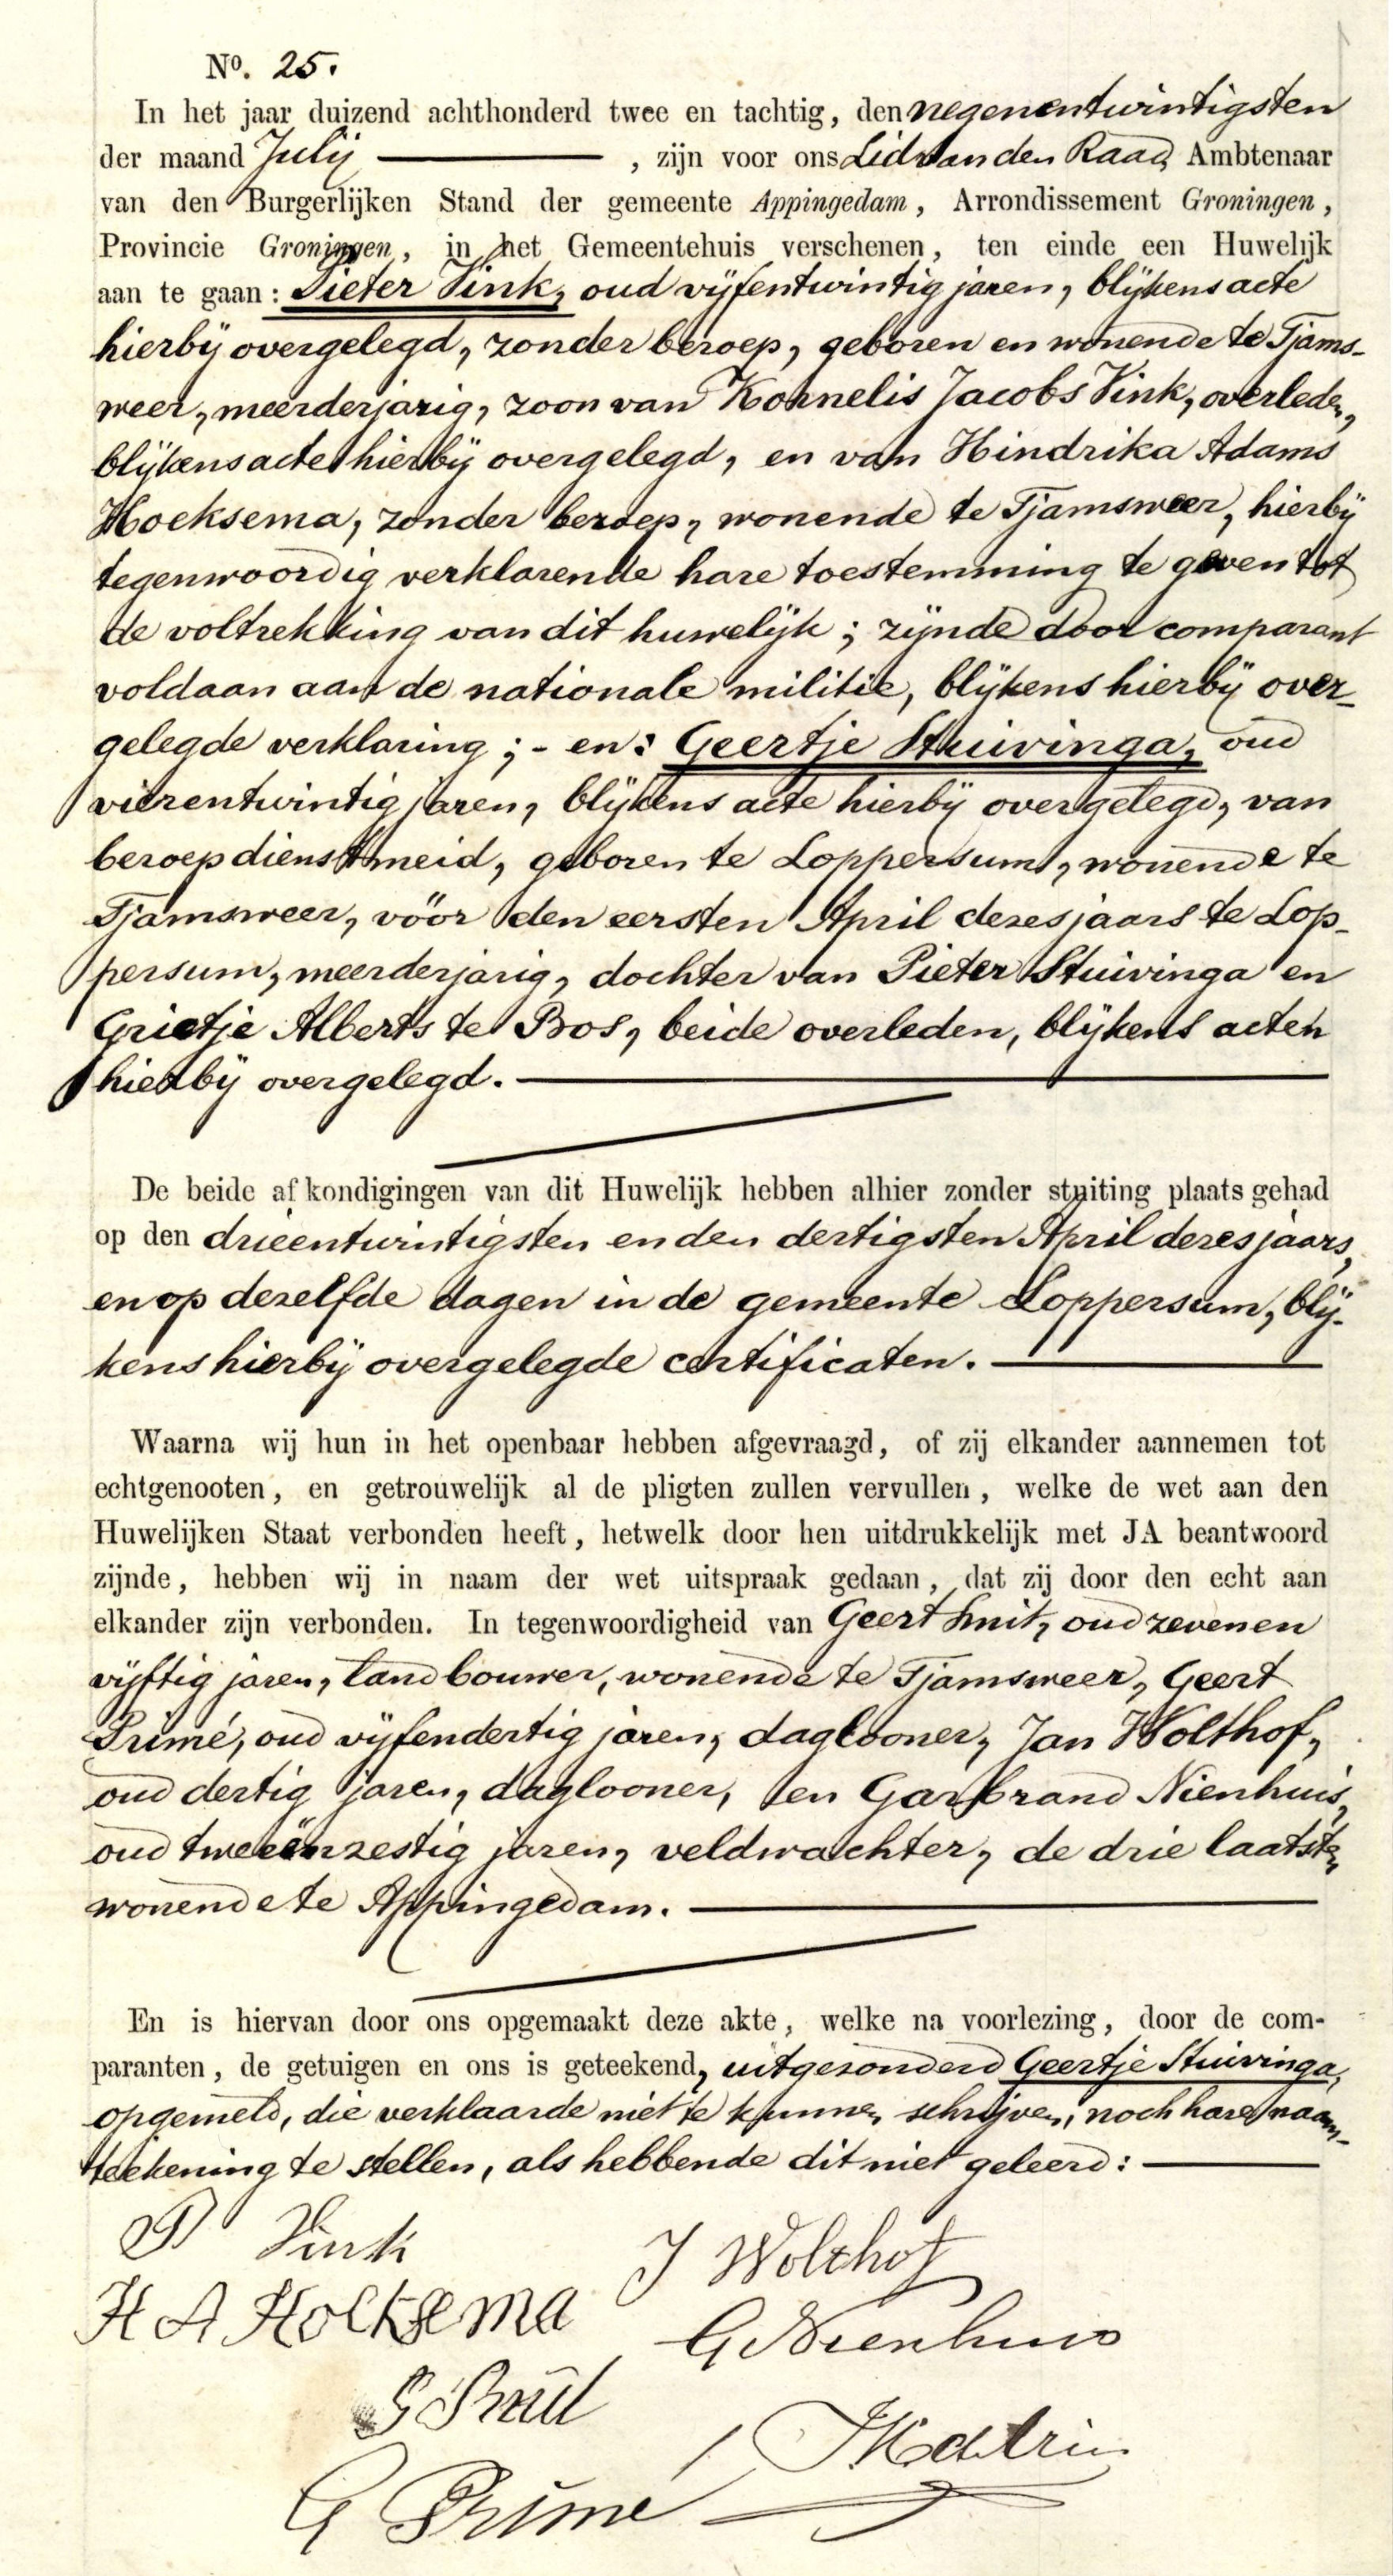 No. 25.
In het jaar duizend achthonderd twee en tachtig, den negenentwintigsten
der maand Julij , zijn voor ons Lid van den Raad, Ambtenaar
van den Burgerlijken Stand der gemeente Appingedam, Arrondissement Groningen,
Provincie Groningen, in het Gemeentehuis verschenen, ten einde een Huwelijk
aan te gaan: Pieter Vink, oud vijfentwintig jaren, blijkens acte
hierbij overgelegd, zonder beroep, geboren en wonende te Tjams-
weer, meerderjarig, zoon van Kornelis Jacobs Vink, overleden,
blijkens acte hierbij overgelegd, en van Hindrika Adams
Hoeksema, zonder beroep, wonende te Tjamsweer, hierbij
tegenwoordig verklarende hare toestemming te geven tot
de voltrekking van dit huwelijk; zijnde door comparant
voldaan aan de nationale militie, blijkens hierbij over-
gelegde verklaring; - en: Geertje Stuivinga, oud
vierentwintig jaren, blijkens acte hierbij overgelegd, van
beroep dienstmeid, geboren te Loppersum, wonende te
Tjamsweer, vöor den eersten April dezes jaars te Lop-
persum, meerderjarig, dochter van Pieter Stuivinga en
Grietje Alberts te Bos, beide overleden, blijkens acten
hierbij overgelegd.
De beide afkondigingen van dit Huwelijk hebben alhier zonder stuiting plaats gehad
op den drieentwintigsten en den dertigsten April dezes jaars,
en op dezelfde dagen in de gemeente Loppersum, blij-
kens hierbij overgelegde certificaten.
Waarna wij hun in het openbaar hebben afgevraagd, of zij elkander aannemen tot
echtgenooten, en getrouwelijk al de pligten zullen vervullen, welke de wet aan den
Huwelijken Staat verbonden heeft, hetwelk door hen uitdrukkelijk met JA beantwoord
zijnde, hebben wij in naam der wet uitspraak gedaan, dat zij door den echt aan
elkander zijn verbonden. In tegenwoordigheid van Geert Smit, oud zevenen
vijftig jaren, landbouwer, wonende te Tjamsweer, Geert
Primé, oud vijfendertig jaren, daglooner, Jan Wolthof,
oud dertig jaren, daglooner, en Garbrand Nienhuis,
oud tweeënzestig jaren, veldwachter, de drie laatsten
wonende te Appingedam.
En is hiervan door ons opgemaakt deze akte, welke na voorlezing, door de com-
paranten, de getuigen en ons is geteekend, uitgezonderd Geertje Stuivinga,
opgemeld, die verklaarde niet te kunnen schrijven, noch hare naam-
teekening te stellen, als hebbende dit niet geleerd:
P Vink
J Wolthof
H A Hoeksema
G Nienhuis
G Smit
G Prime